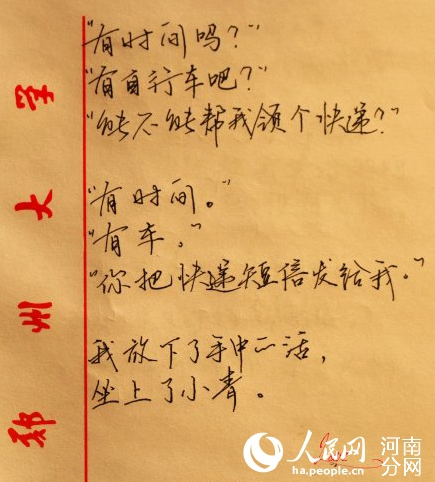 "有时间吗？"
"有自行车吧？"
"能不能帮我领个快递？"
"有时间。"
"有车。"
"你把快递短信发给我。"
我放下了手中的活，
坐上了小青。
郑州大学
人民网 河南分网
ha.people.cn